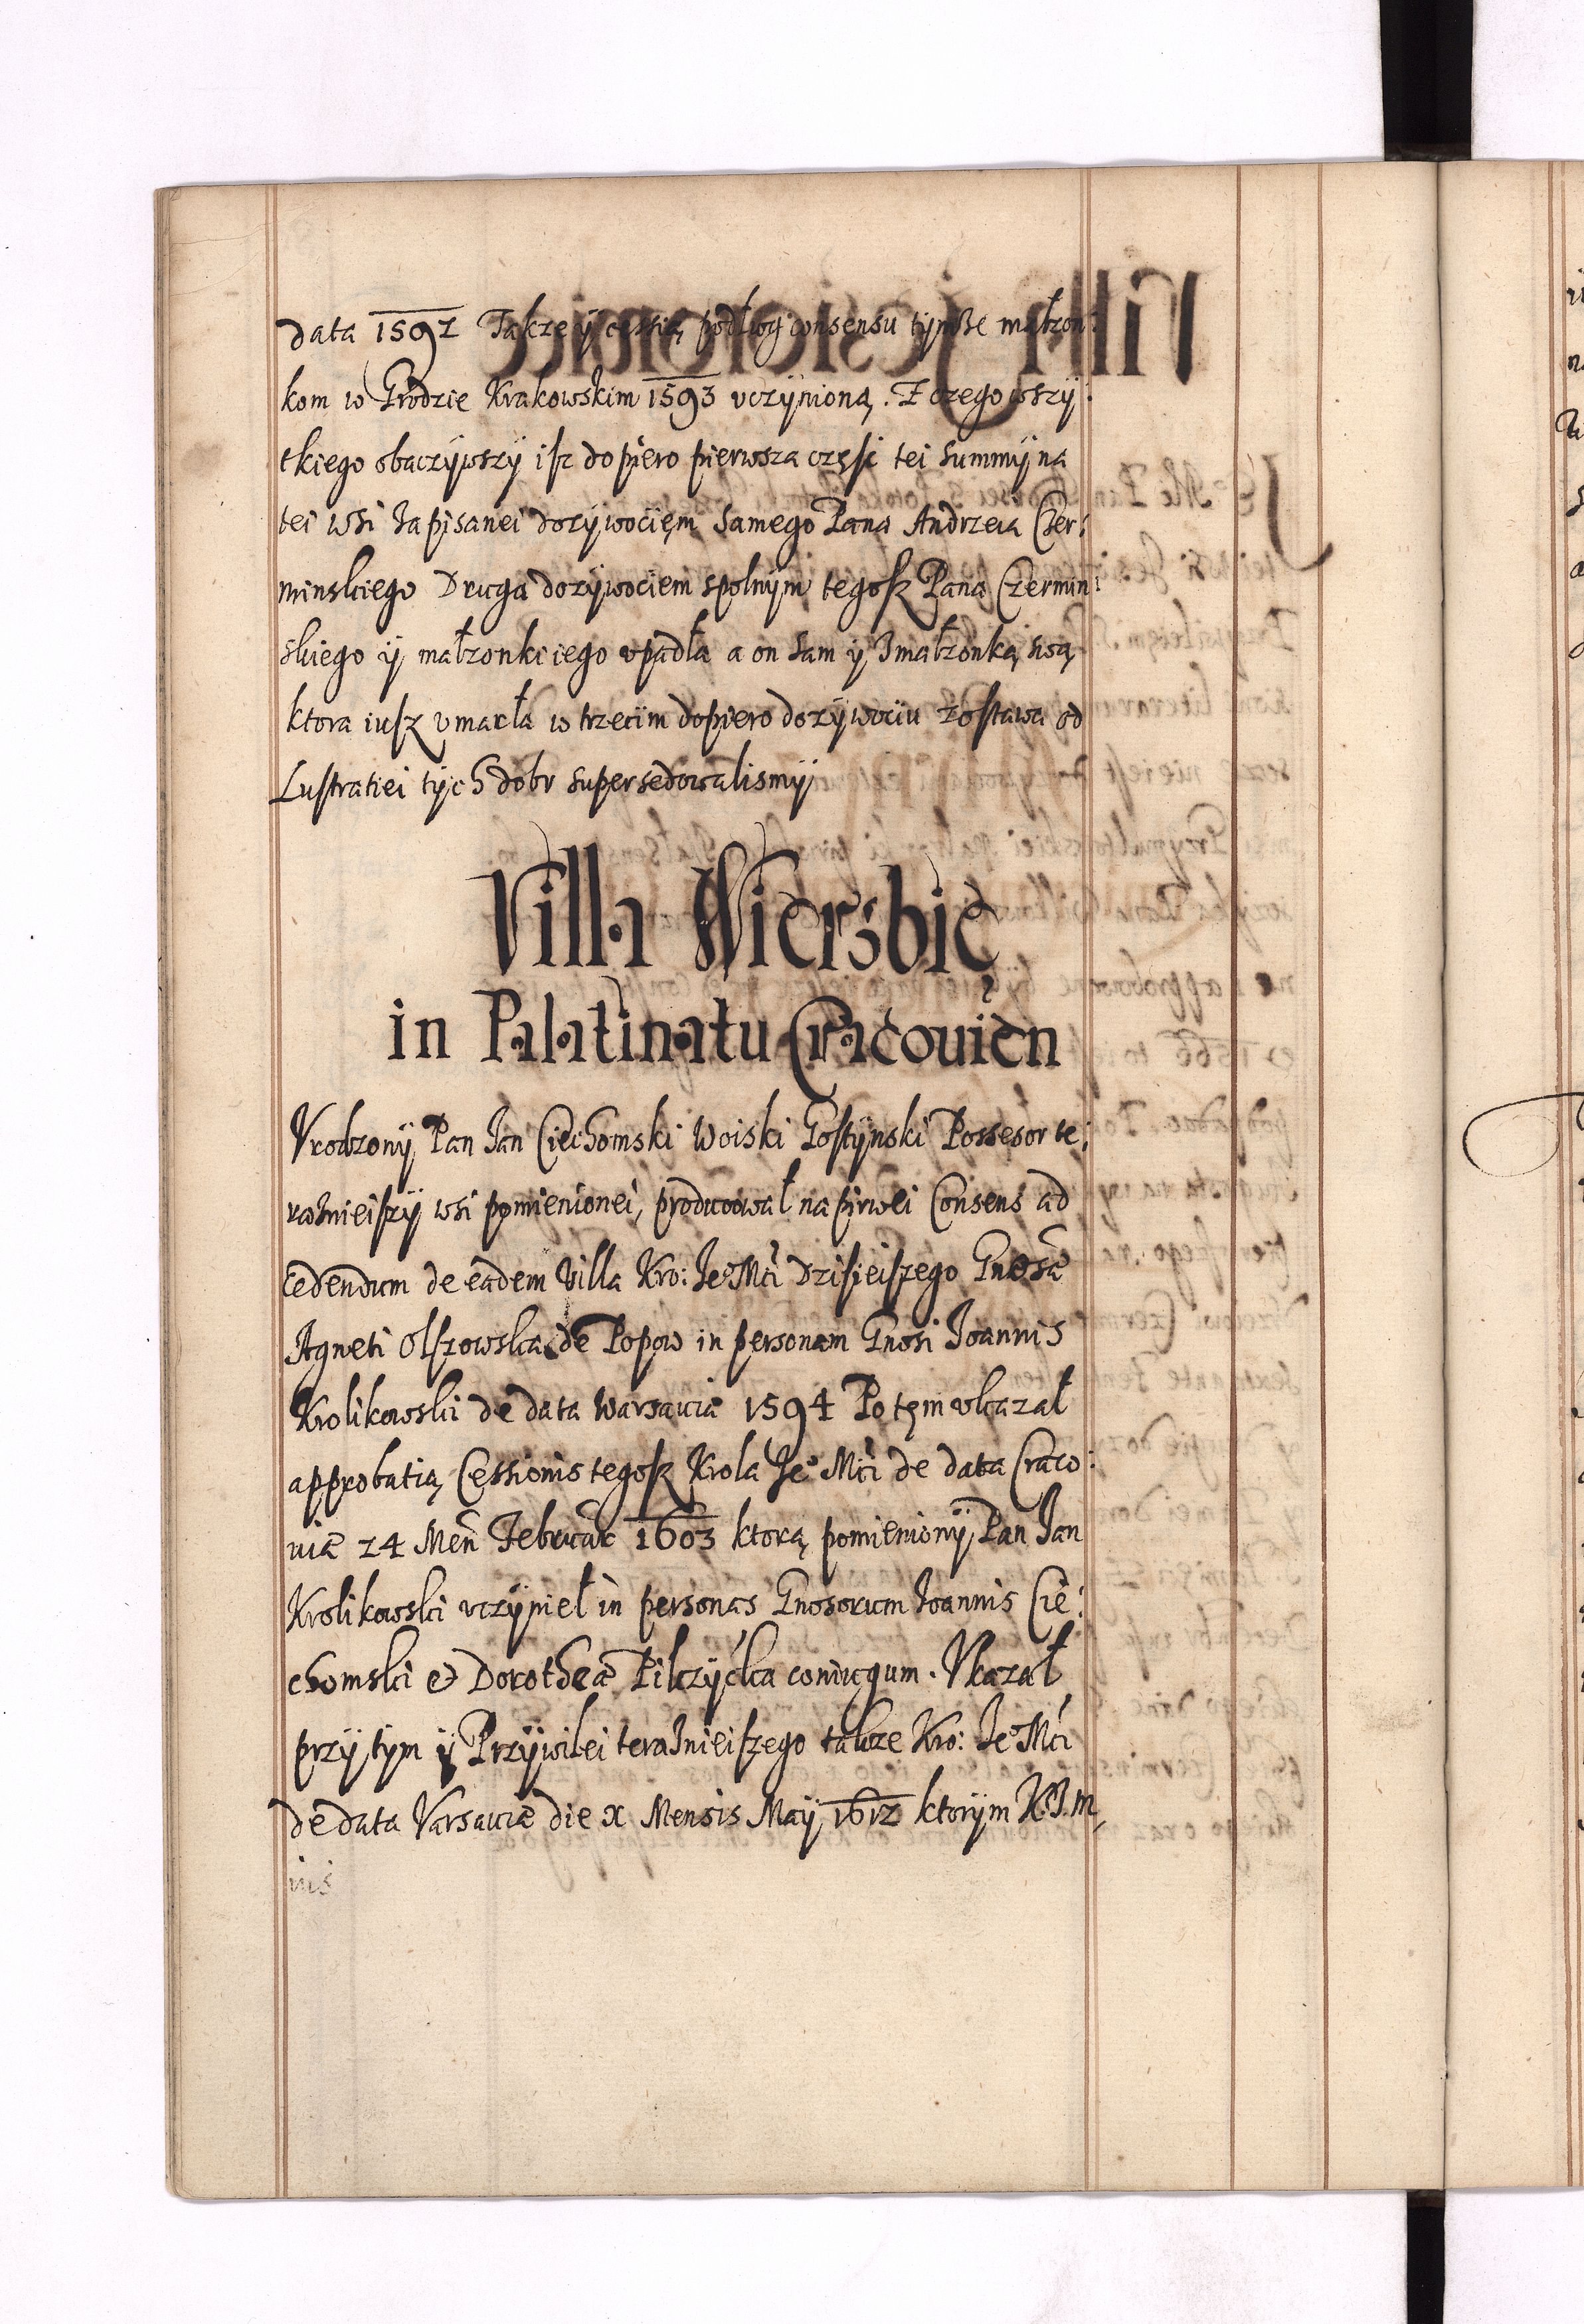 data 1592 Takze ÿ cessią podług consensu tÿmße małzon:
kom w Grodzie Krakowskim 1593 vczÿnioną. Z czego wszÿ:
tkiego obaczÿwszÿ isz dopiero pierwsza częśc tei Summÿ na
tei wsi Zapisanei dozÿwociem Samego Pana Andrzeia Czer:
minskiego Druga dozÿwociem spolnÿm tegosz Pana Czermin:
skiego ÿ małzonki iego vpadła a on Sam ÿ Zmałzonką swą
ktora iusz vmarła w trzecim dopiero dozÿwociu zostawa od
Lustratiei tÿch dobr supersedowalismÿ
Villa Wiersbię
in Palatinatu Cracouien
Vrodzonÿ Pan Jan Ciechomski Woiski Gostÿnski Possesor te:
razniejszÿ wsi pomienionei, producował napirwei Consens ad
cedendum de eadem Villa Kro: Jeo Mci dzisieiszego Gnosæ
Agneti Olszowska de Popow in personam Gnosi Joannis
Krolikowski de data Warsauiæ 1594 Potęm vkazał
approbatią Cessionis tegosz Krola Jeo Mci de data Craco:
uiæ 24 Men Februar 1603 ktorą pomienionÿ Pan Jan
Krolikowski vczÿnieł in personas Gnosorum Joannis Cie:
chomski et Dorotheæ Pilczÿcka coniugum. Vkazał
przÿ tÿm ÿ Przÿwilei teraznieiszego takze Kro: Jeo Mci
de data Varsauiæ die x Mensis Maÿ 1612 ktorÿm K.J.m